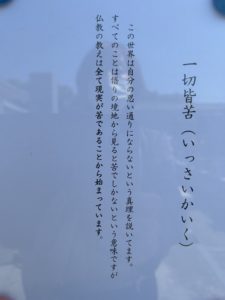 一切皆苦(いっさいかいく)
この世界は自分の思い通りにならないという真理を説いてます。
すべてのことは悟りの境地から見ると苦でしかないという意味ですが
仏教の教えは全て現実が苦であることから始まっています。